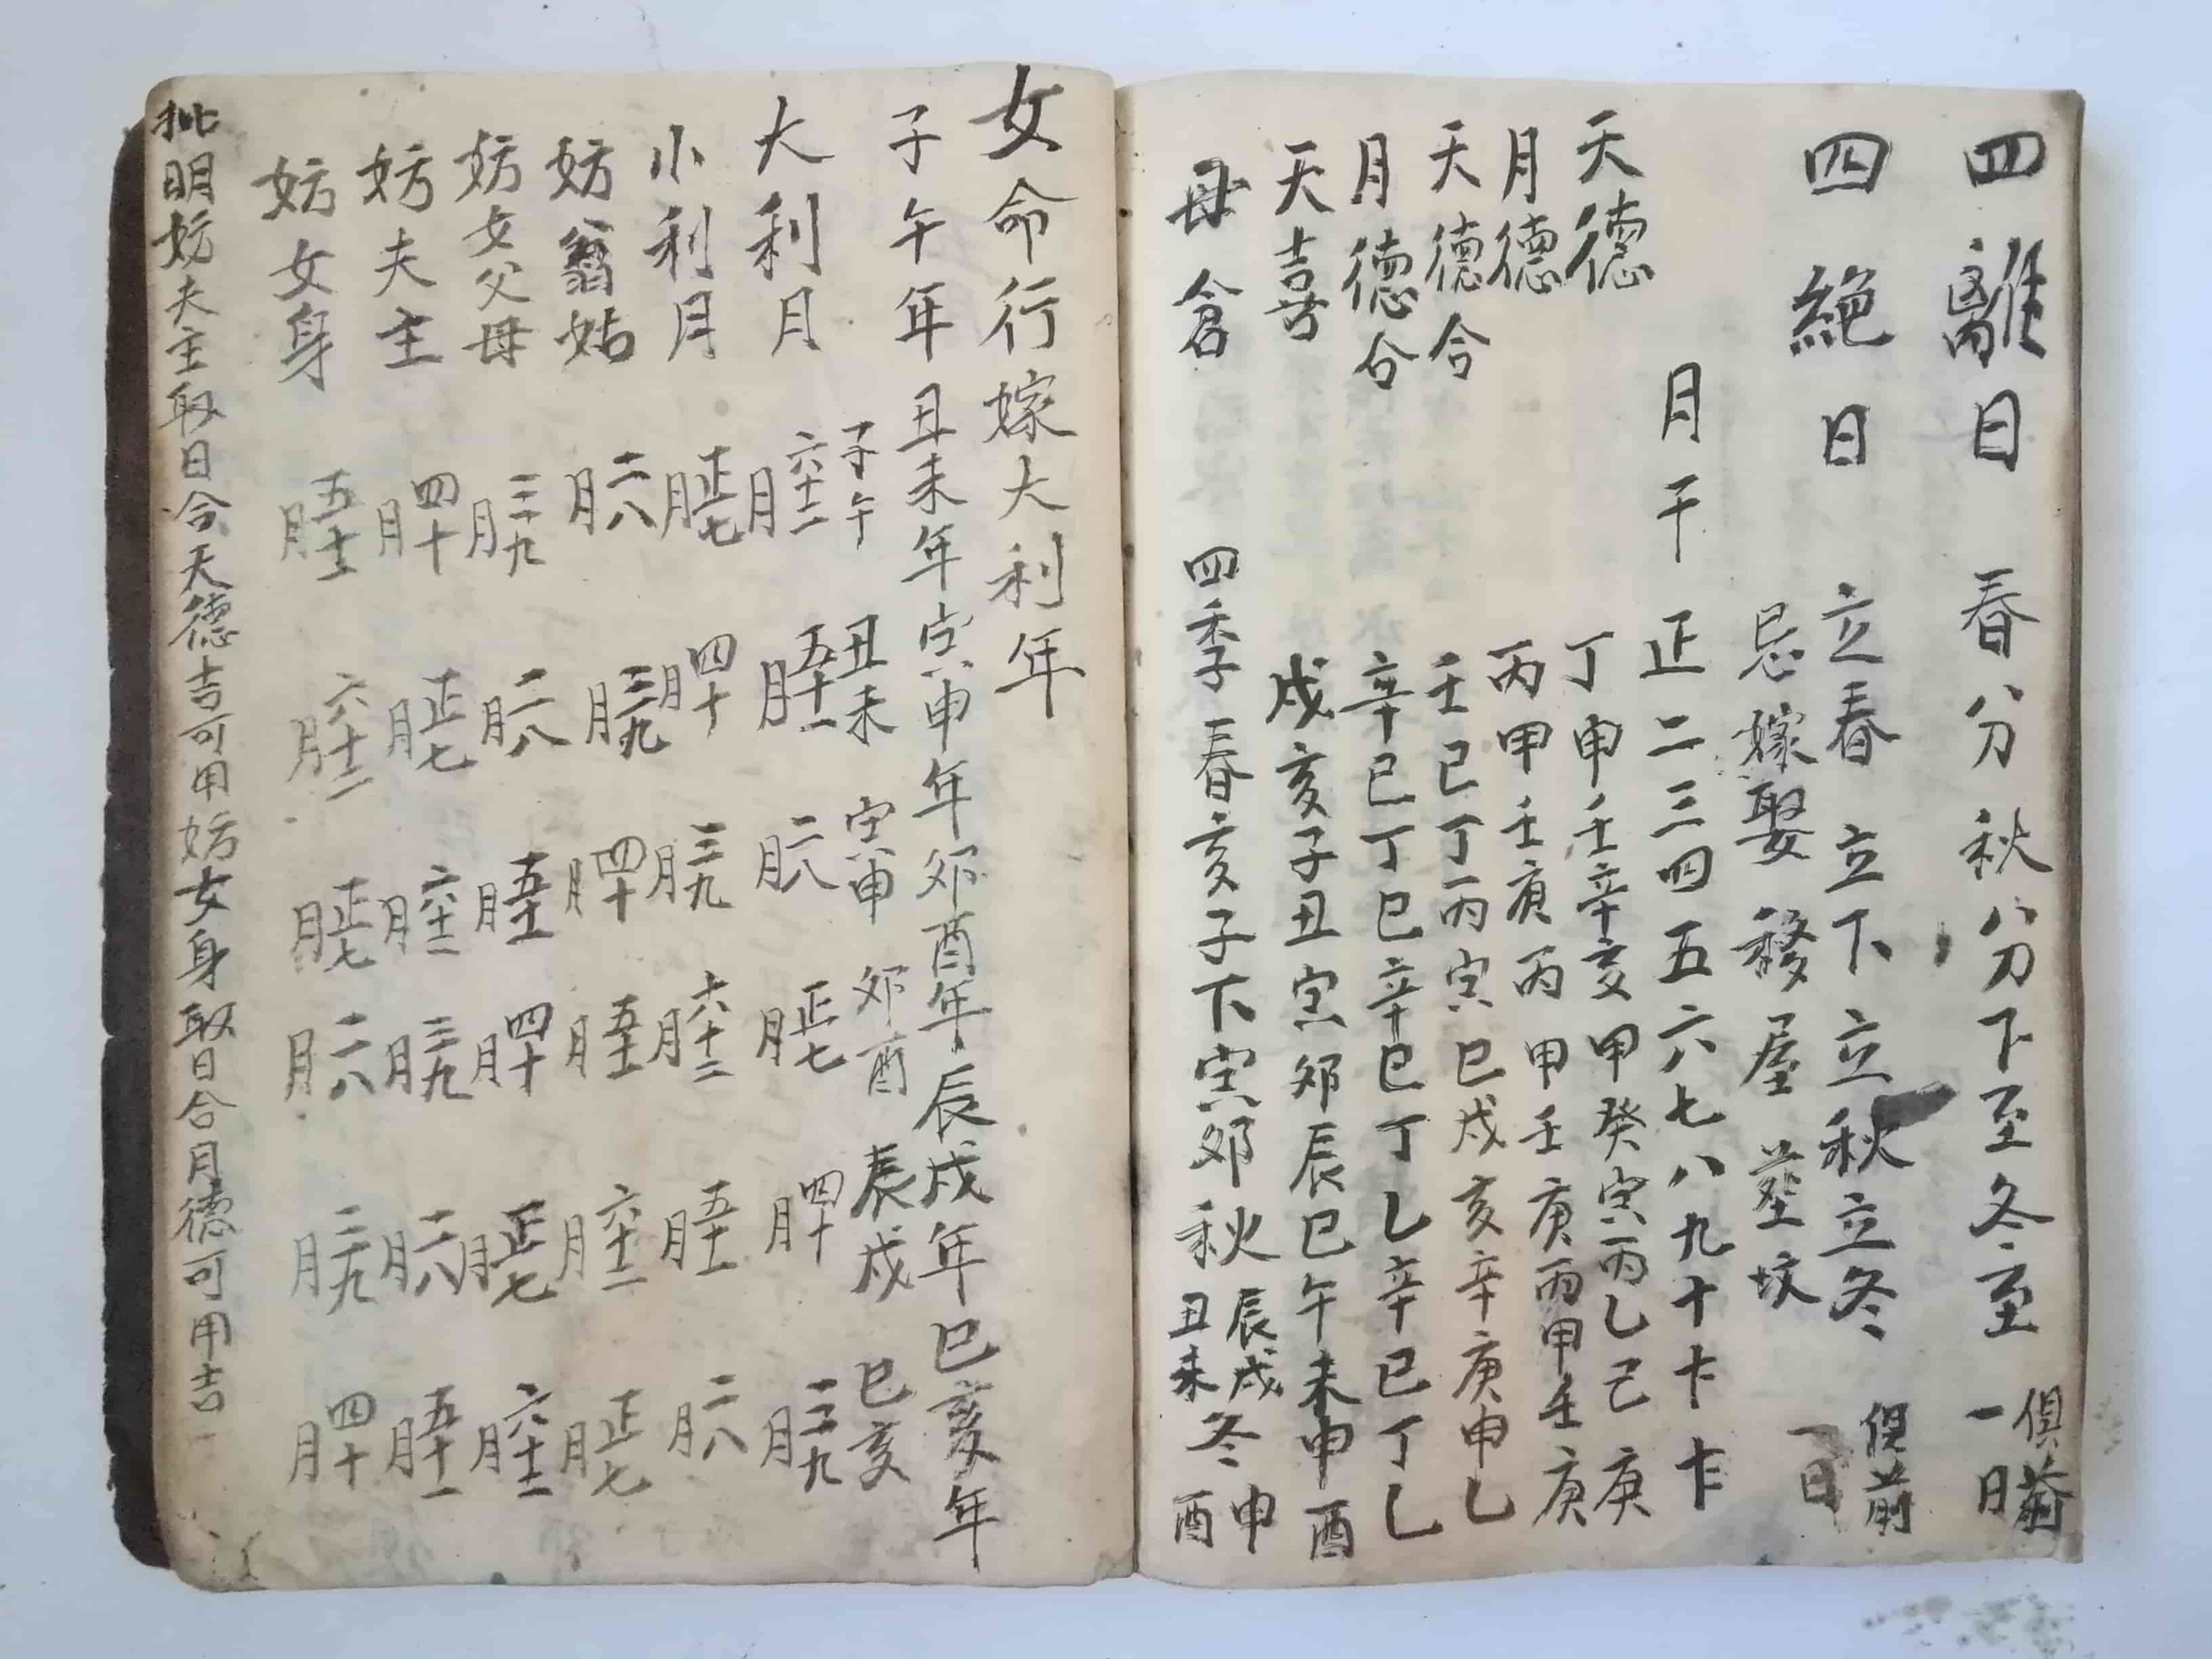 四離日 春分 秋分 下至 冬至 俱前一日
四絕日 立春 立下 立秋 立冬 俱前一日
忌嫁娶 移屋 塟坟
月干 正二三四五六七八九十十一十二
天德 丁申壬辛亥甲癸寅丙乙己庚
月德 丙甲壬庚丙甲壬庚丙甲壬庚
天德合 壬巳丁丙寅巳戌亥辛庚申乙
月德合 辛巳丁巳辛巳丁乙辛巳丁乙
天喜 戌亥子丑寅卯辰巳午未申酉
母倉 四季 春亥子下寅卯秋辰戌丑未冬申酉
女命行嫁大利年
子午年丑未年寅申年卯酉年辰戌年巳亥年
子午 丑未 寅申 卯酉 辰戌 巳亥
大利月 六十二月 五十一月 二八月 正七月 四十月 三九月
小利月 正七月 四十月 三九月 六十二月 五十一月 二八月
妨翁姑 二八月 三九月 四十月 五十一月 六十二月 正七月
妨女父母 三九月 二八月 五十一月 四十月 正七月 六十二月
妨夫主 四十月 正七月 六十二月 三九月 二八月 五十一月
妨女身 五十一月 六十二月 正七月 二八月 三九月 四十月
批明妨夫主取日合天德吉可用妨女身取日合月德可用吉